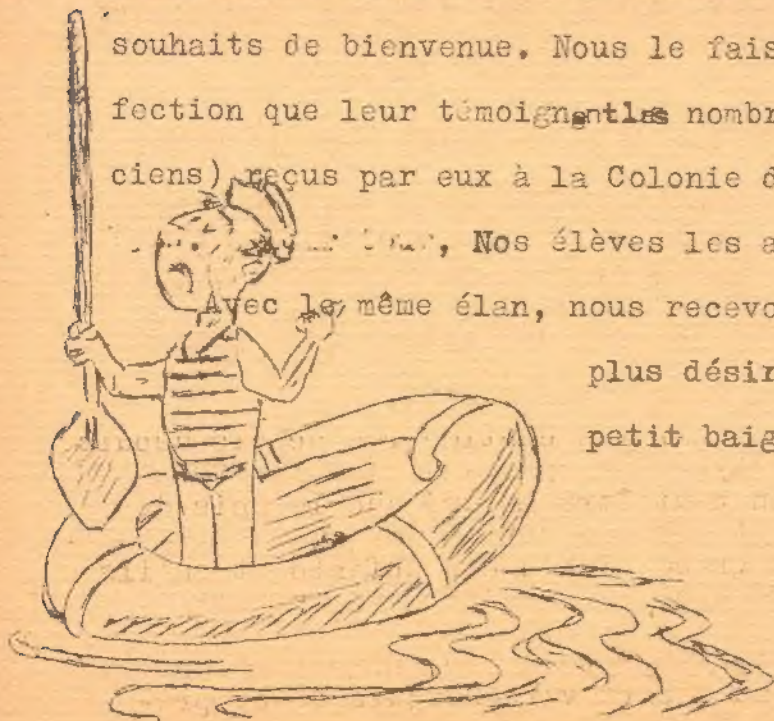 souhaits de bienvenue. Nous le fais
fection que leur témoignentles nombr
ciens) reçus par eux à la Colonie d
, Nos élèves les a
Avec le même élan, nous recevo
plus désir
petit baig